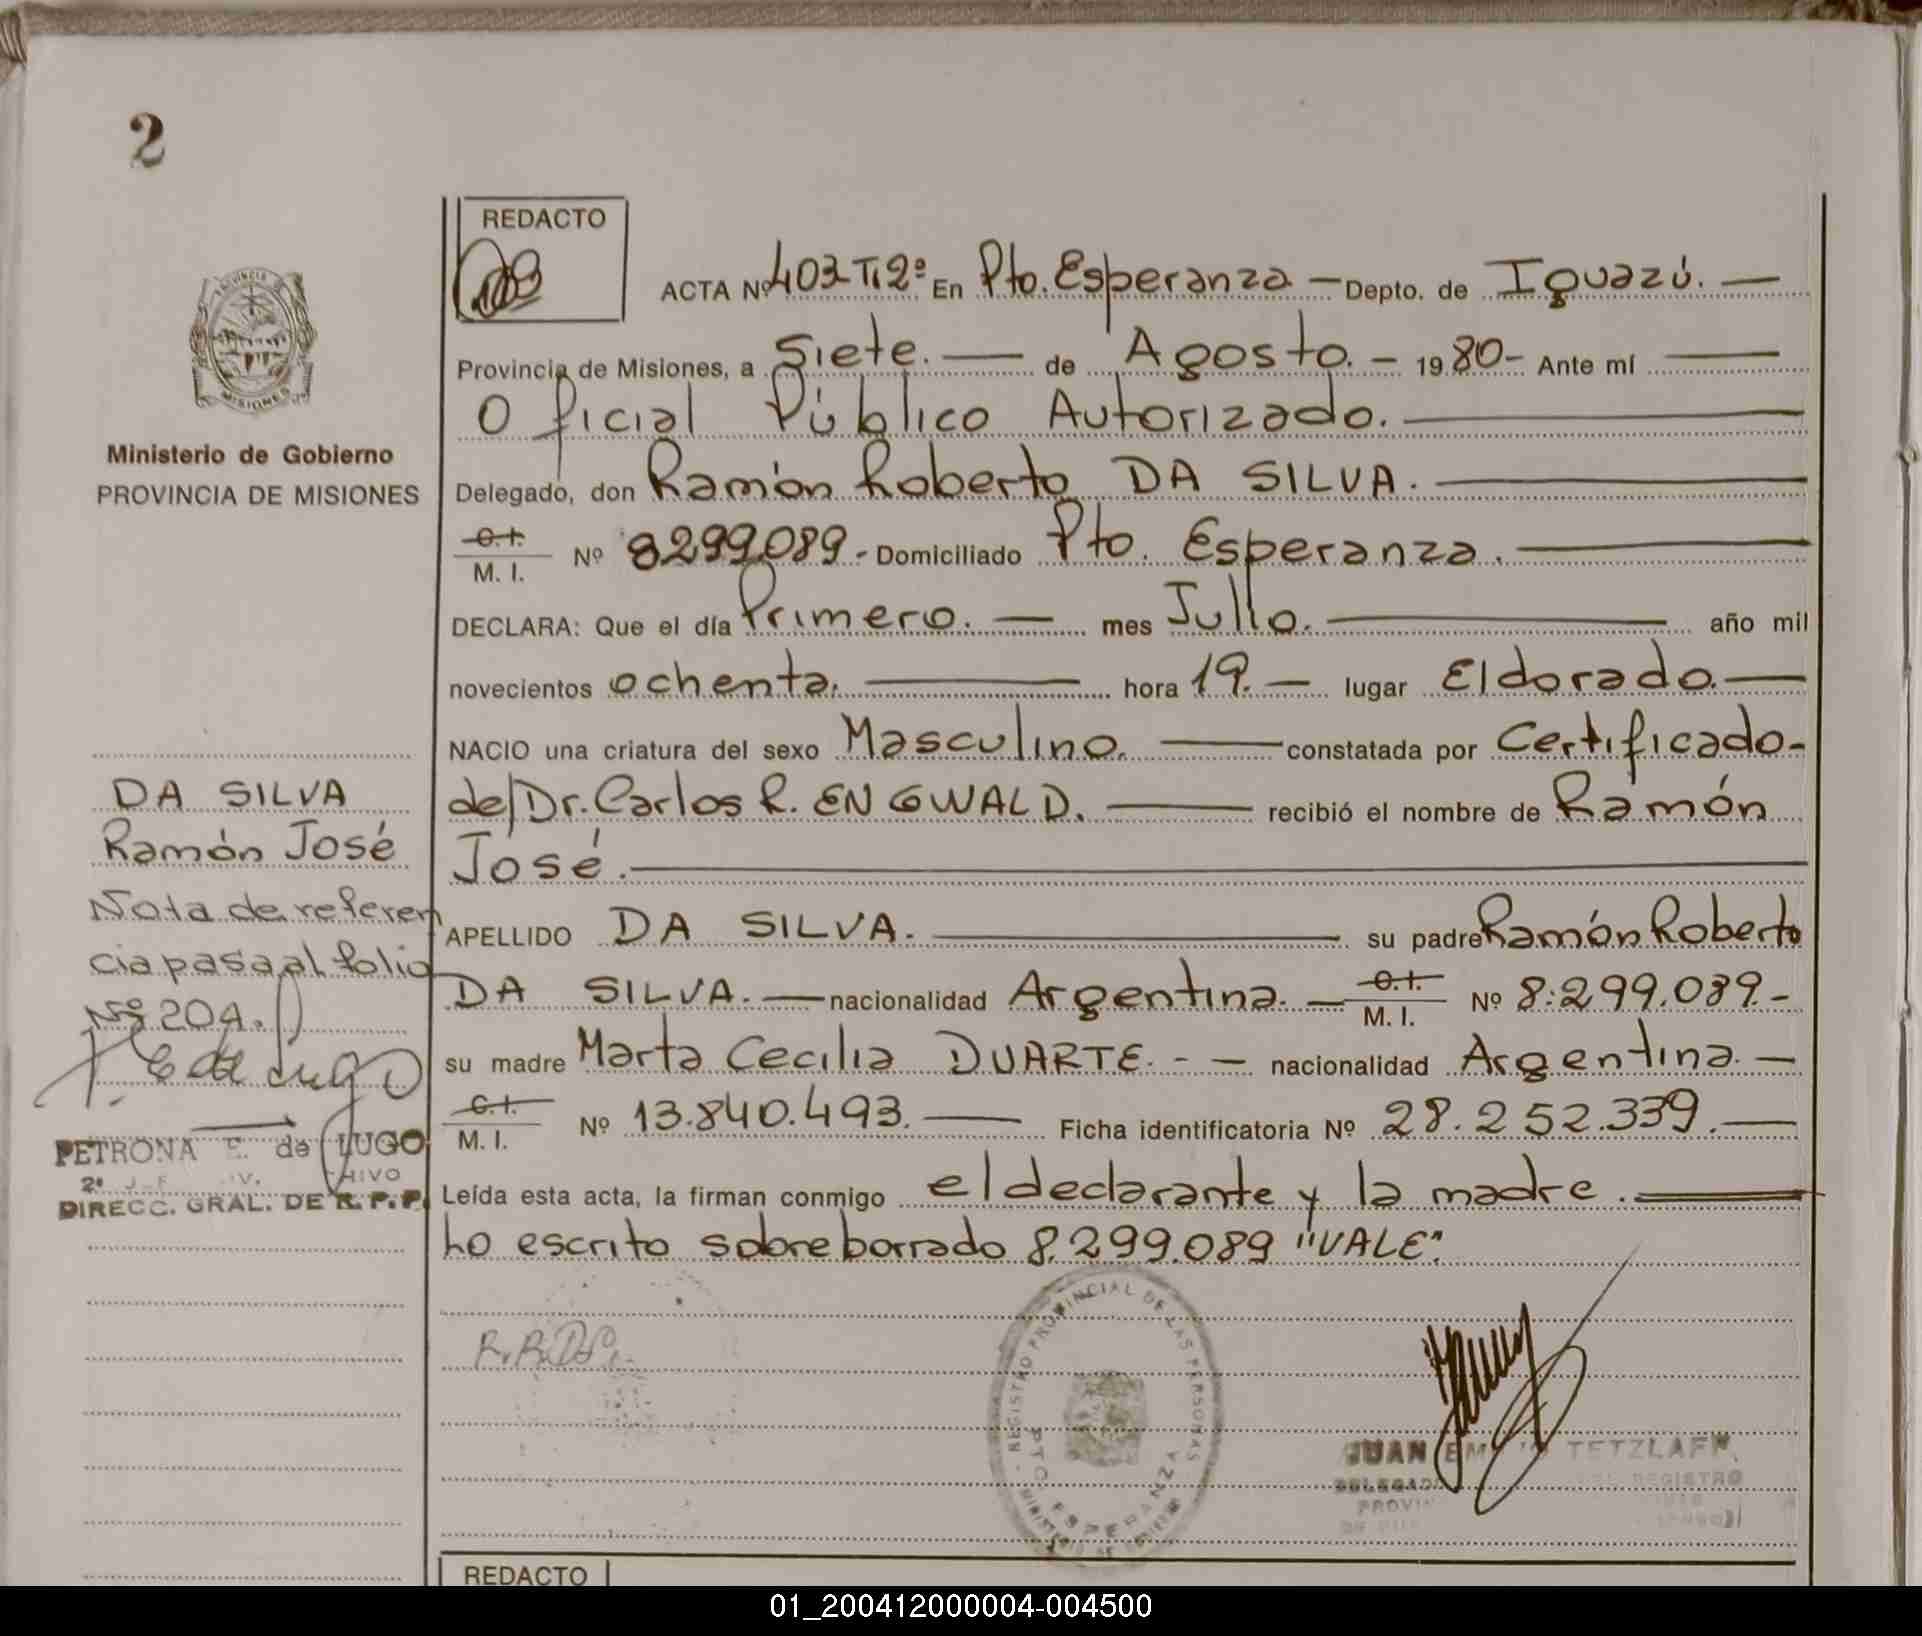 2
REDACTO
ACTA Nº 403 Tº2º En Pto. Esperanza — Depto. de Iguazú. —
Provincia de Misiones, a Siete. — de Agosto. - 1980- Ante mí —
Oficial Público Autorizado. —
Delegado, don Ramón Roberto DA SILVA. —
C.I.
M. I. Nº 8299089.- Domiciliado Pto. Esperanza. —
DECLARA: Que el día Primero. — mes Julio. — año mil
novecientos ochenta. — hora 19. — lugar Eldorado. —
NACIO una criatura del sexo Masculino. — constatada por Certificado-
de/Dr. Carlos R. ENGWALD. — recibió el nombre de Ramón
José. —
APELLIDO DA SILVA. — su padre Ramón Roberto
DA SILVA. — nacionalidad Argentina. — C.I.
M. I. Nº 8.299.089.-
su madre Marta Cecilia DUARTE. - — nacionalidad Argentina. —
C.I.
M. I. Nº 13.840.493. — Ficha identificatoria Nº 28.252.339. —
Leída esta acta, la firman conmigo el declarante y la madre. —
Lo escrito sobreborrado 8.299.089 "VALE".
R.R.DS.
REGISTRO PROVINCIAL DE LAS PERSONAS
PTO. ESPERANZA
MINISTERIO DE GOBIERNO
JUAN TETZLAFF
DEL REGISTRO
REDACTO
PROVINCIA
MISIONES
Ministerio de Gobierno
PROVINCIA DE MISIONES
DA SILVA
Ramón José
Nota de referen
cia pasa al folio
Nº 204.
P. E de Lugo
PETRONA E. de LUGO
DIRECC. GRAL. DE R. P. P.
01_200412000004-004500